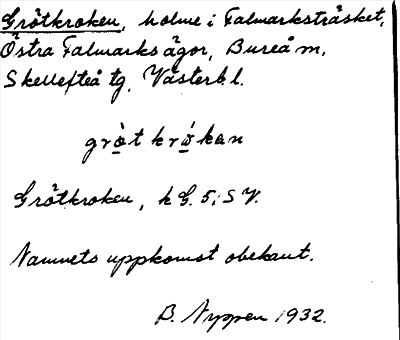 Grötkroken, holme i Falmarksträsket,
Östra Falmarks ägor, Bureå m,
Skellefteå tg, Västerb. l.
gròt krókan
Grötkroken, k G. 5, S V.
Namnets uppkomst obekant.
B. Nyppen 1932.